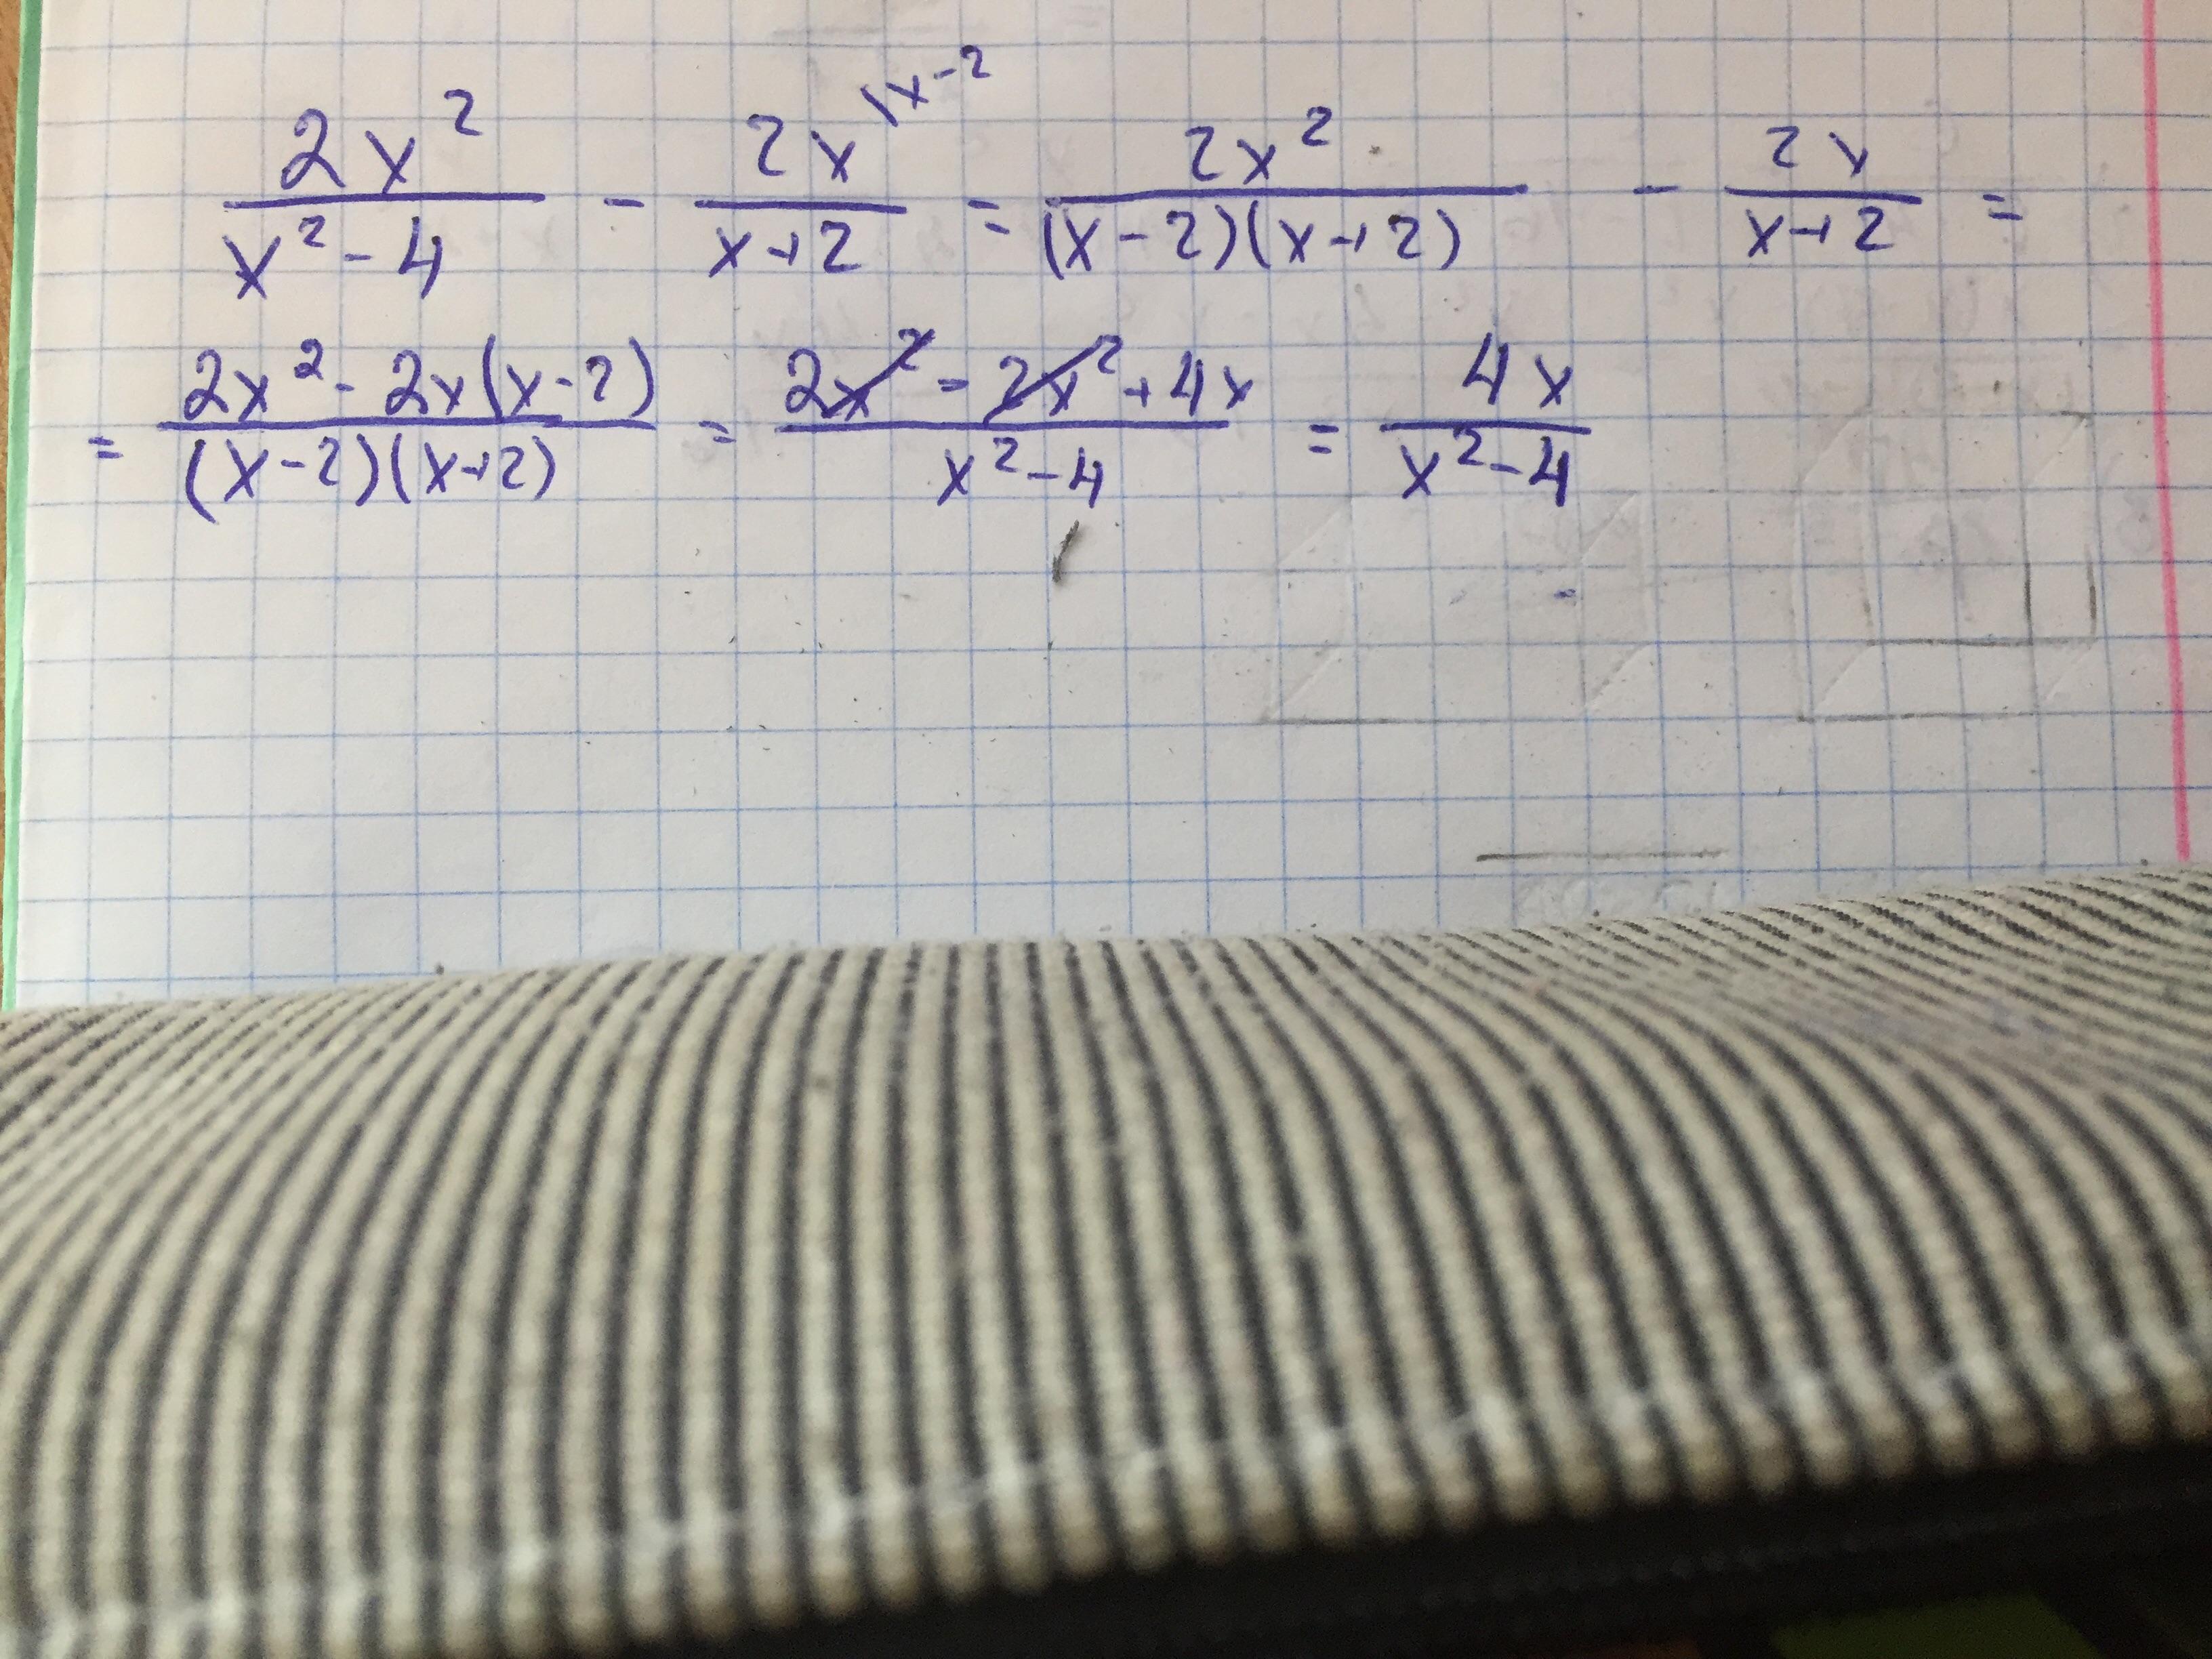 2x²/(x²-4) - 2x/(x+2) \x-2 = 2x²/((x-2)(x+2)) - 2x/(x+2) =
= (2x²-2x(x-2))/((x-2)(x+2)) = (2x²-2x²+4x)/(x²-4) = 4x/(x²-4)